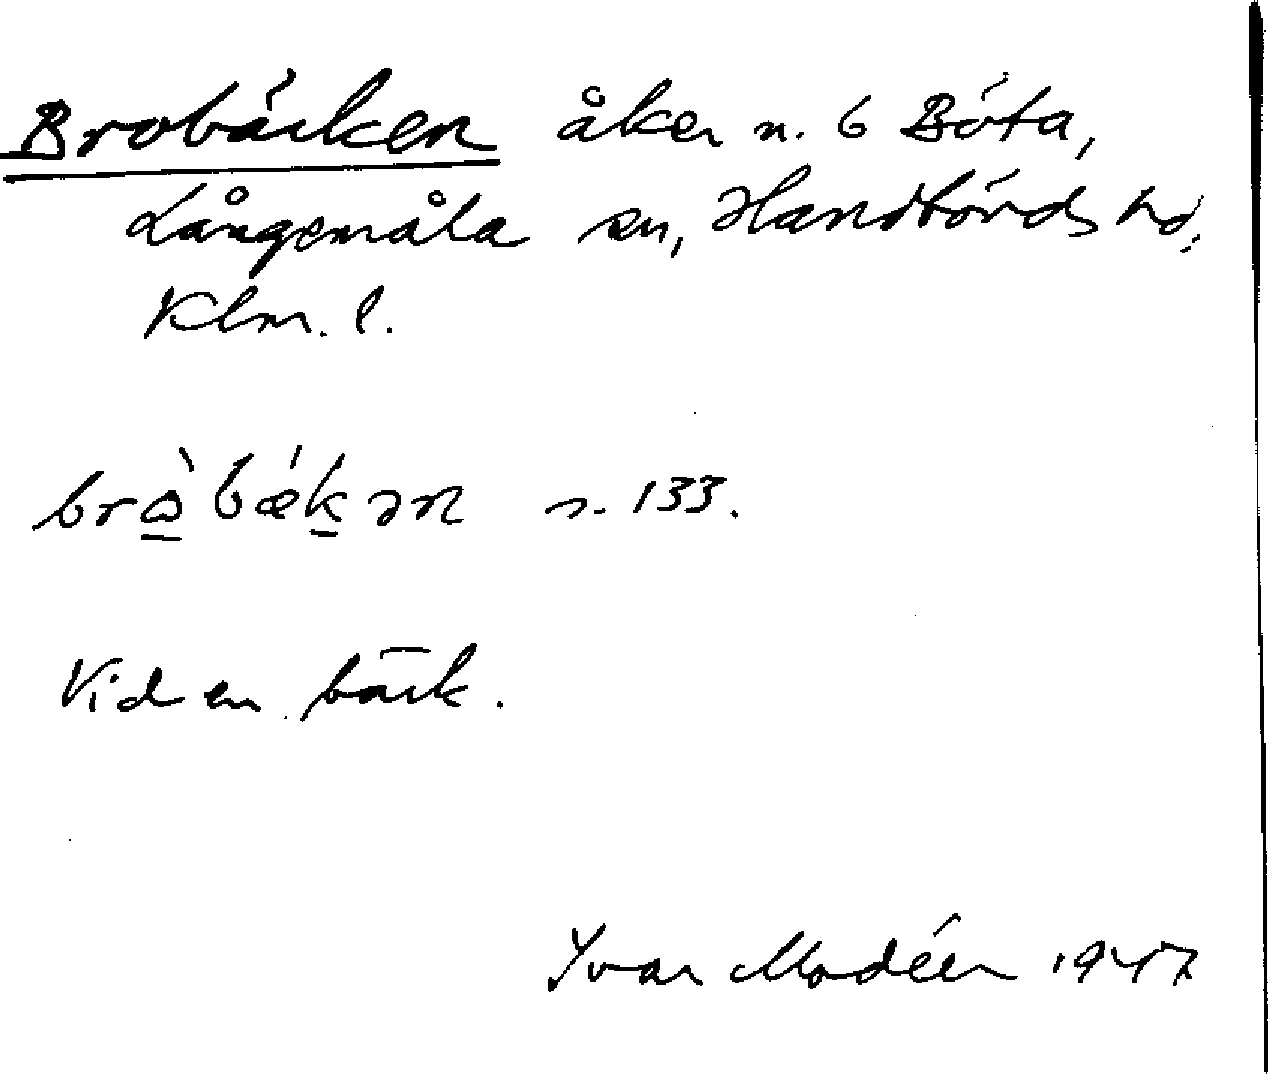 Brobäcken åker n. 6 Böta,
Långemåla sn, Handbörds hd,
Klm. l.
brὼbǽkən s. 133.
Vid en bäck.
Yvar Modéer 1947